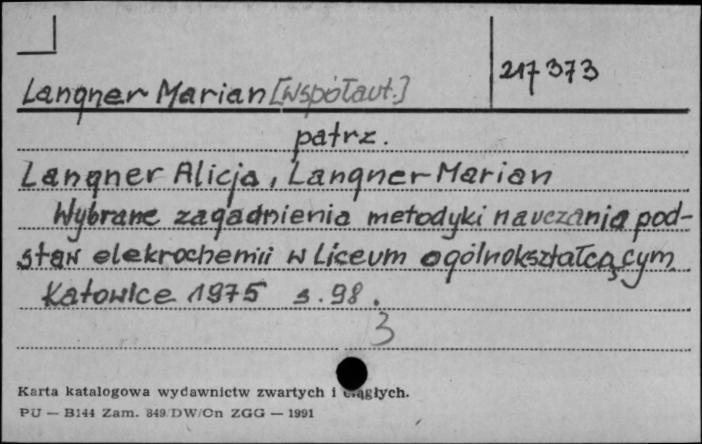 217373
Langner Marian [współaut.]
patrz.
Langner Alicja, Langner Marian
Wybrane zagadnienia metodyki nauczania pod-
staw elekrochemii w Liceum ogólnokształcącym
Katowice 1975 s. 98.
3
Karta katalogowa wydawnictw zwartych i ciągłych.
PU — B144 Zam. 849/DW/On ZGG — 1991